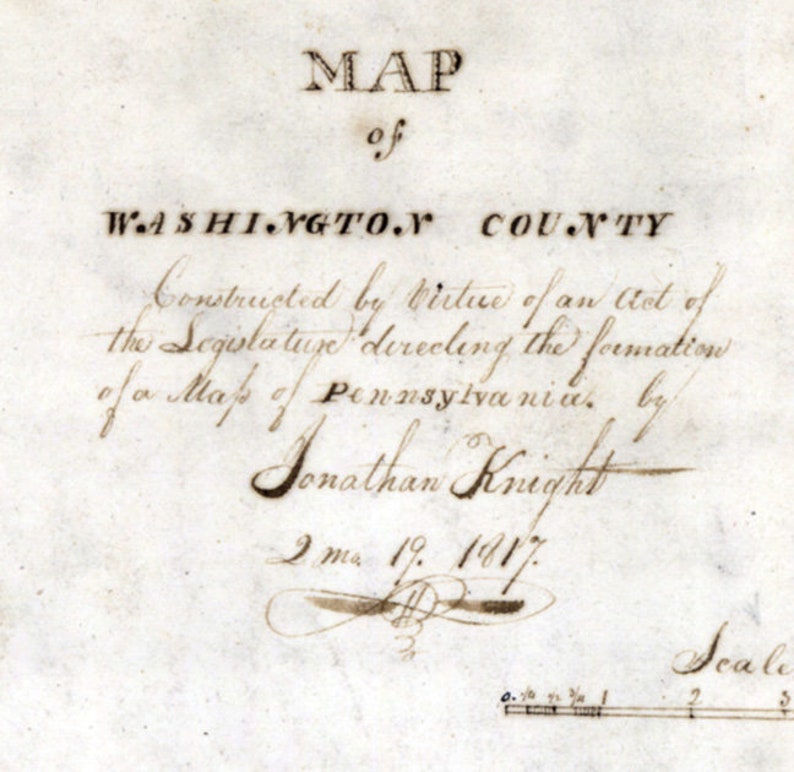 MAP
of
WASHINGTON COUNTY
Constructed by Virtue of an Act of
the Legislature directing the formation
of a Map of Pennsylvania. by
Jonathan Knight
2 mo. 19. 1817.
Scale
0. 1/4 1/2 3/4 1 2 3